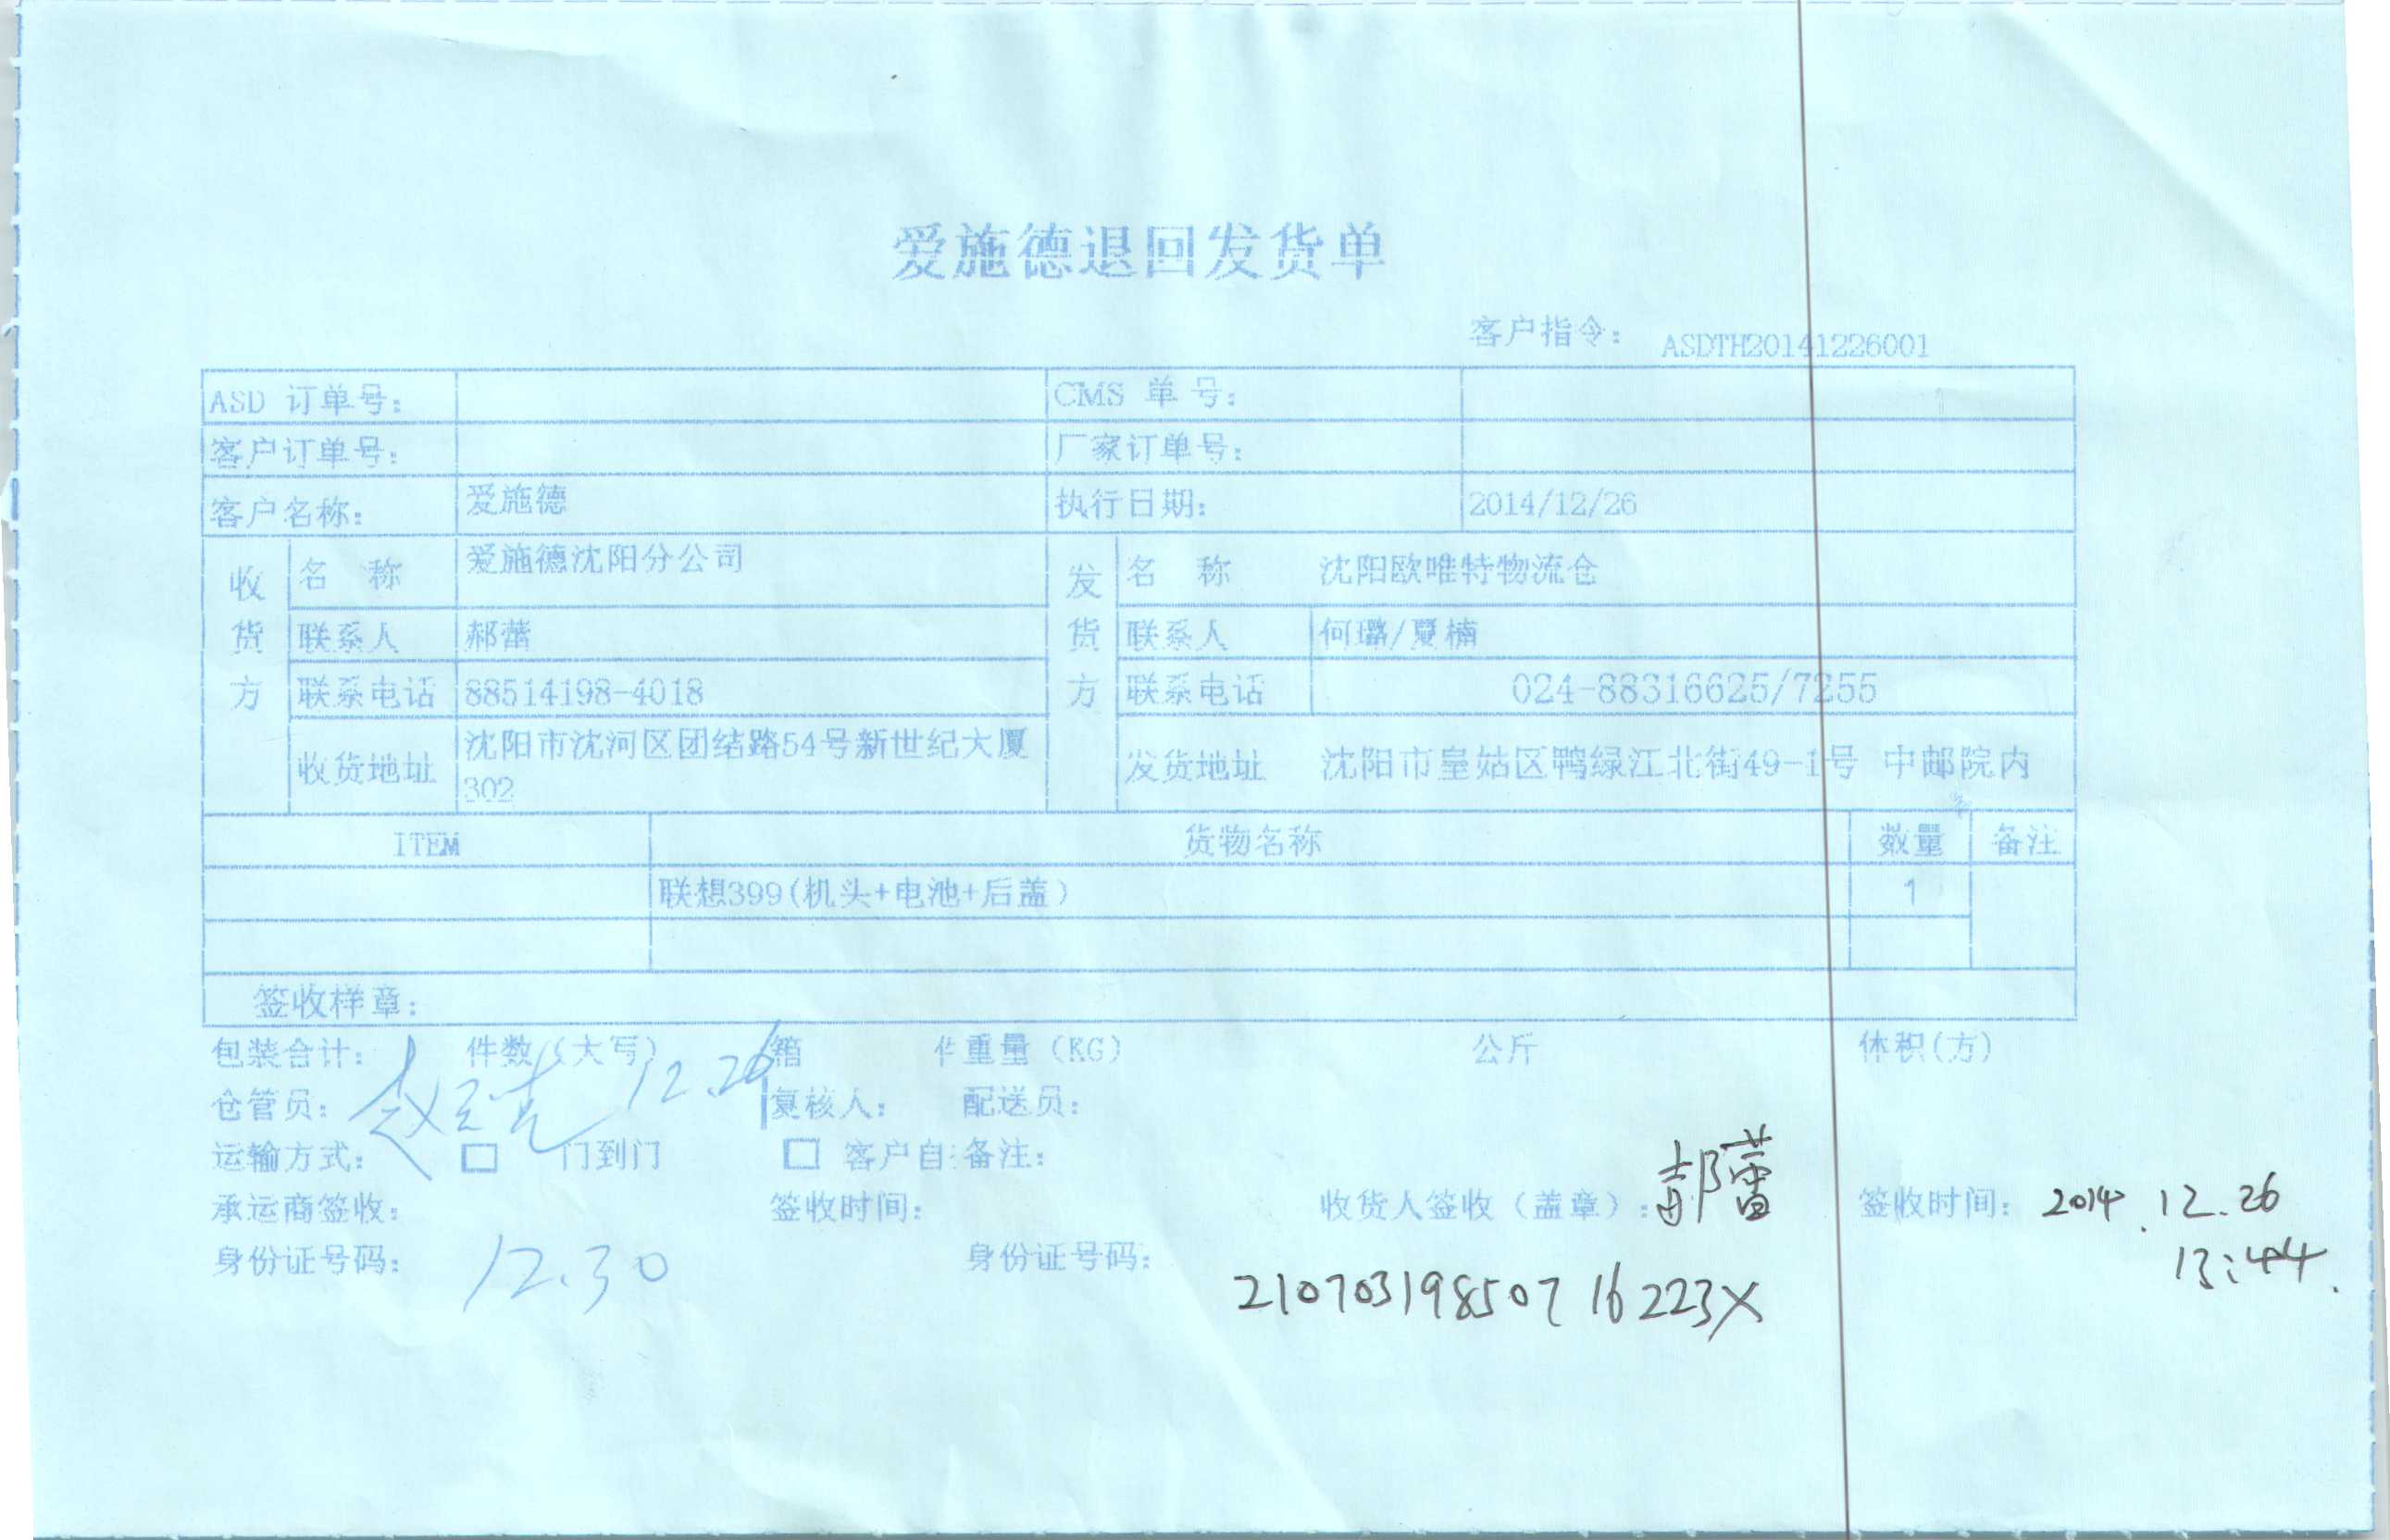 爱施德退回发货单
客户指令： ASDTH20141226001
ASD 订单号： CMS 单 号：
客户订单号： 厂家订单号：
客户名称： 爱施德 执行日期： 2014/12/26
收货方 发货方
名 称 爱施德沈阳分公司 名 称 沈阳欧唯特物流仓
联系人 郝蕾 联系人 何璐/夏楠
联系电话 88514198-4018 联系电话 024-88316625/7255
收货地址 沈阳市沈河区团结路54号新世纪大厦
302
发货地址 沈阳市皇姑区鸭绿江北街49-1号 中邮院内
ITEM 货物名称 数量 备注
联想399(机头+电池+后盖) 1
签收样章：
包装合计： 件数（大写） 箱 件 重量（KG） 公斤 体积(方)
仓管员： 12.26 复核人： 配送员：
运输方式： □ 门到门 □ 客户自 备注：
承运商签收： 签收时间： 收货人签收（盖章）： 郝蕾 签收时间： 2014.12.26
13:44.
身份证号码： 12.30 身份证号码： 21070319850716223X